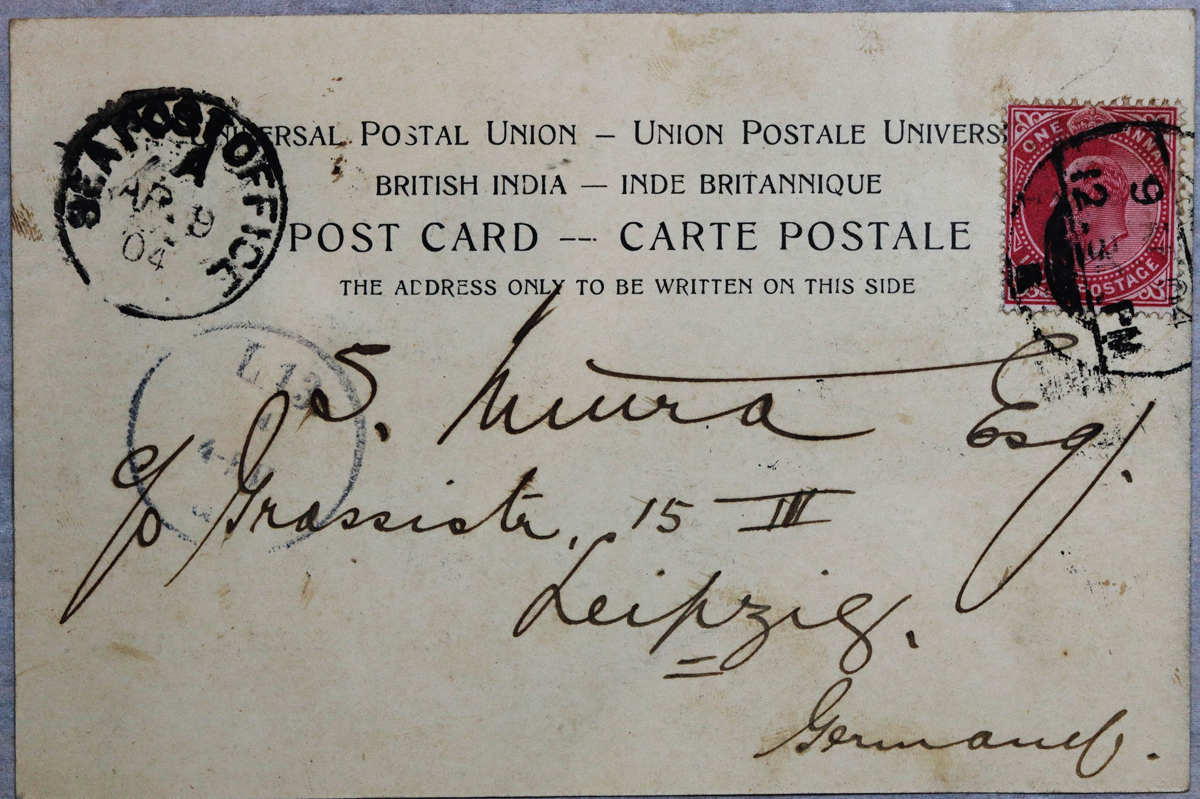 UNIVERSAL POSTAL UNION — UNION POSTALE UNIVERS
BRITISH INDIA — INDE BRITANNIQUE
POST CARD — CARTE POSTALE
THE ADDRESS ONLY TO BE WRITTEN ON THIS SIDE
SEA POST OFFICE
A
AP 9
04
ONE ANNA
POSTAGE
9
12
PM
L 13
S. Miura Esq.
c/o Grassistr. 15 III
Leipzig.
Germany.